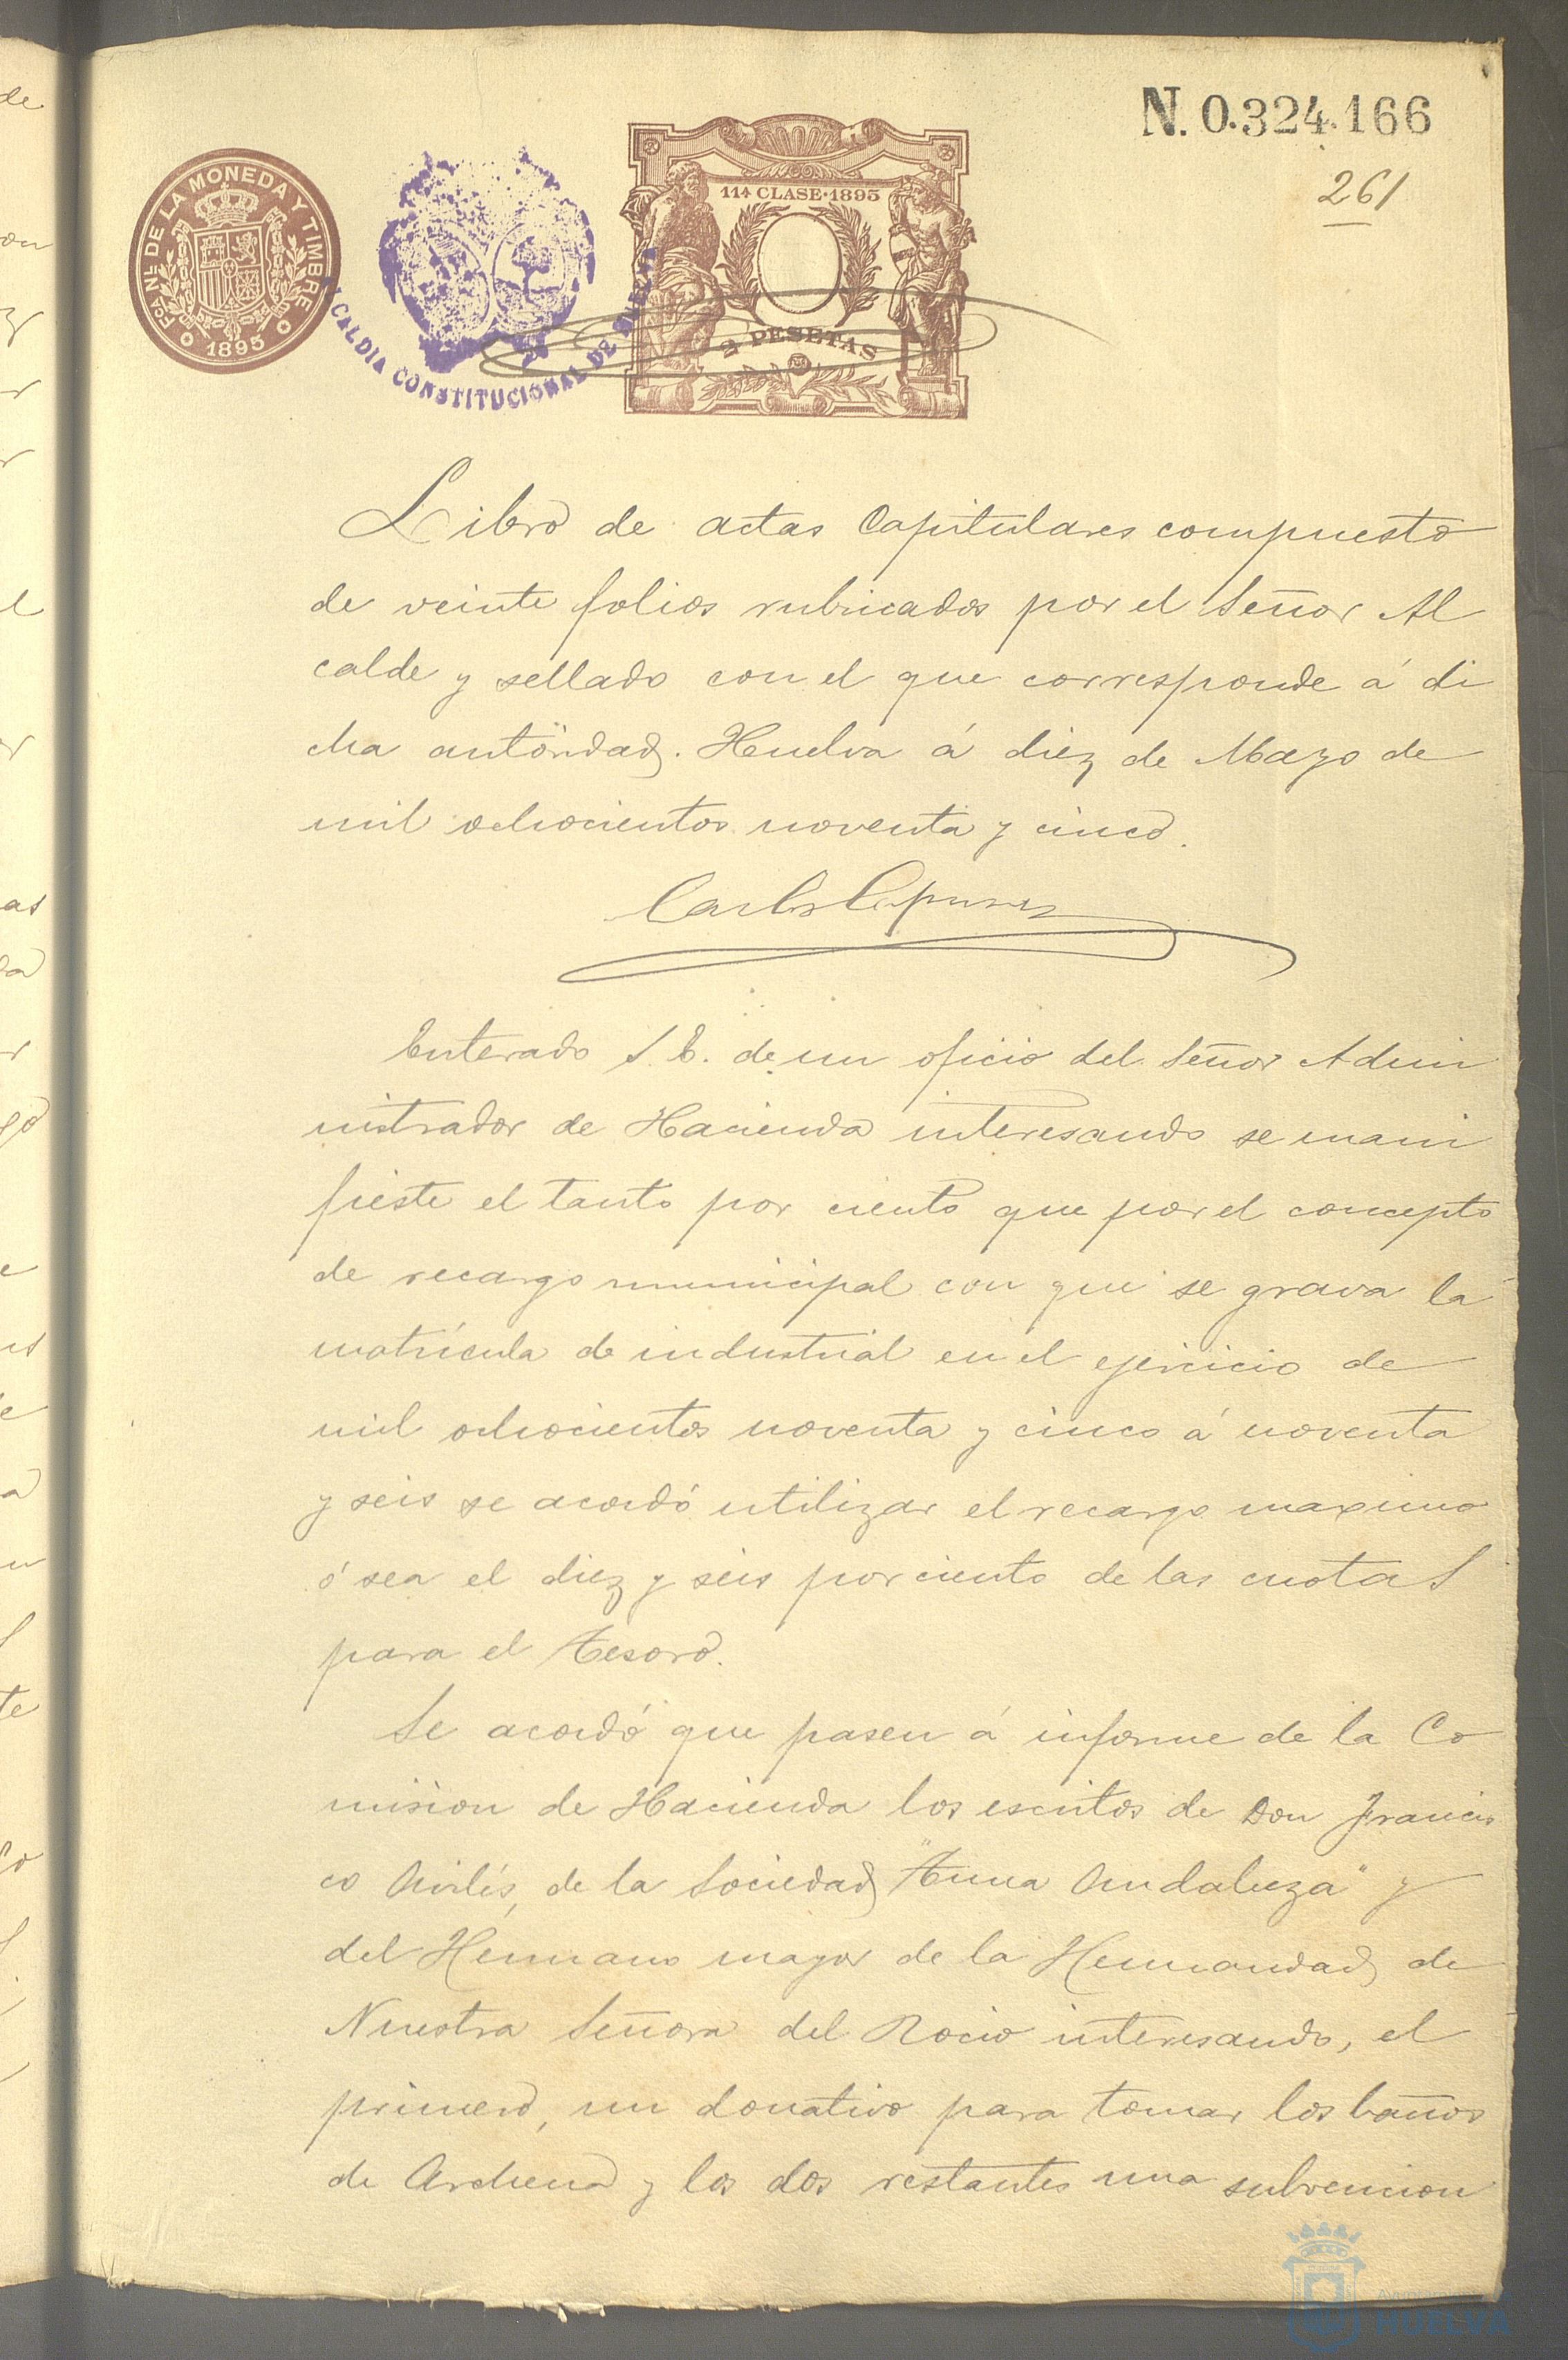 N. 0.324.166
261
FCA. NL. DE LA MONEDA Y TIMBRE
1895
ALCALDIA CONSTITUCIONAL DE HUELVA
11ª CLASE·1895
2 PESETAS
Libro de actas Capitulares compuesto
de veinte folios rubricados por el Señor Al
calde y sellado con el que corresponde á di
cha autoridad. Huelva á diez de Mayo de
mil ochocientos noventa y cinco.
Enterado S. E. de un oficio del Señor Admi
nistrador de Hacienda interesando se mani
fieste el tanto por ciento que por el concepto
de recargo municipal con que se grava la
matrícula de industrial en el ejercicio de
mil ochocientos noventa y cinco á noventa
y seis se acordó utilizar el recargo maximo
ó sea el diez y seis por ciento de las cuotas
para el Tesoro.
Se acordó que pasen á informe de la Co
mision de Hacienda los escritos de Don Francis
co Avilés, de la Sociedad "Tuna Andaluza" y
del Hermano mayor de la Hermandad de
Nuestra Señora del Rocio interesando, el
primero, un donativo para tomar los baños
de Archena y los dos restantes una subvencion
HUELVA